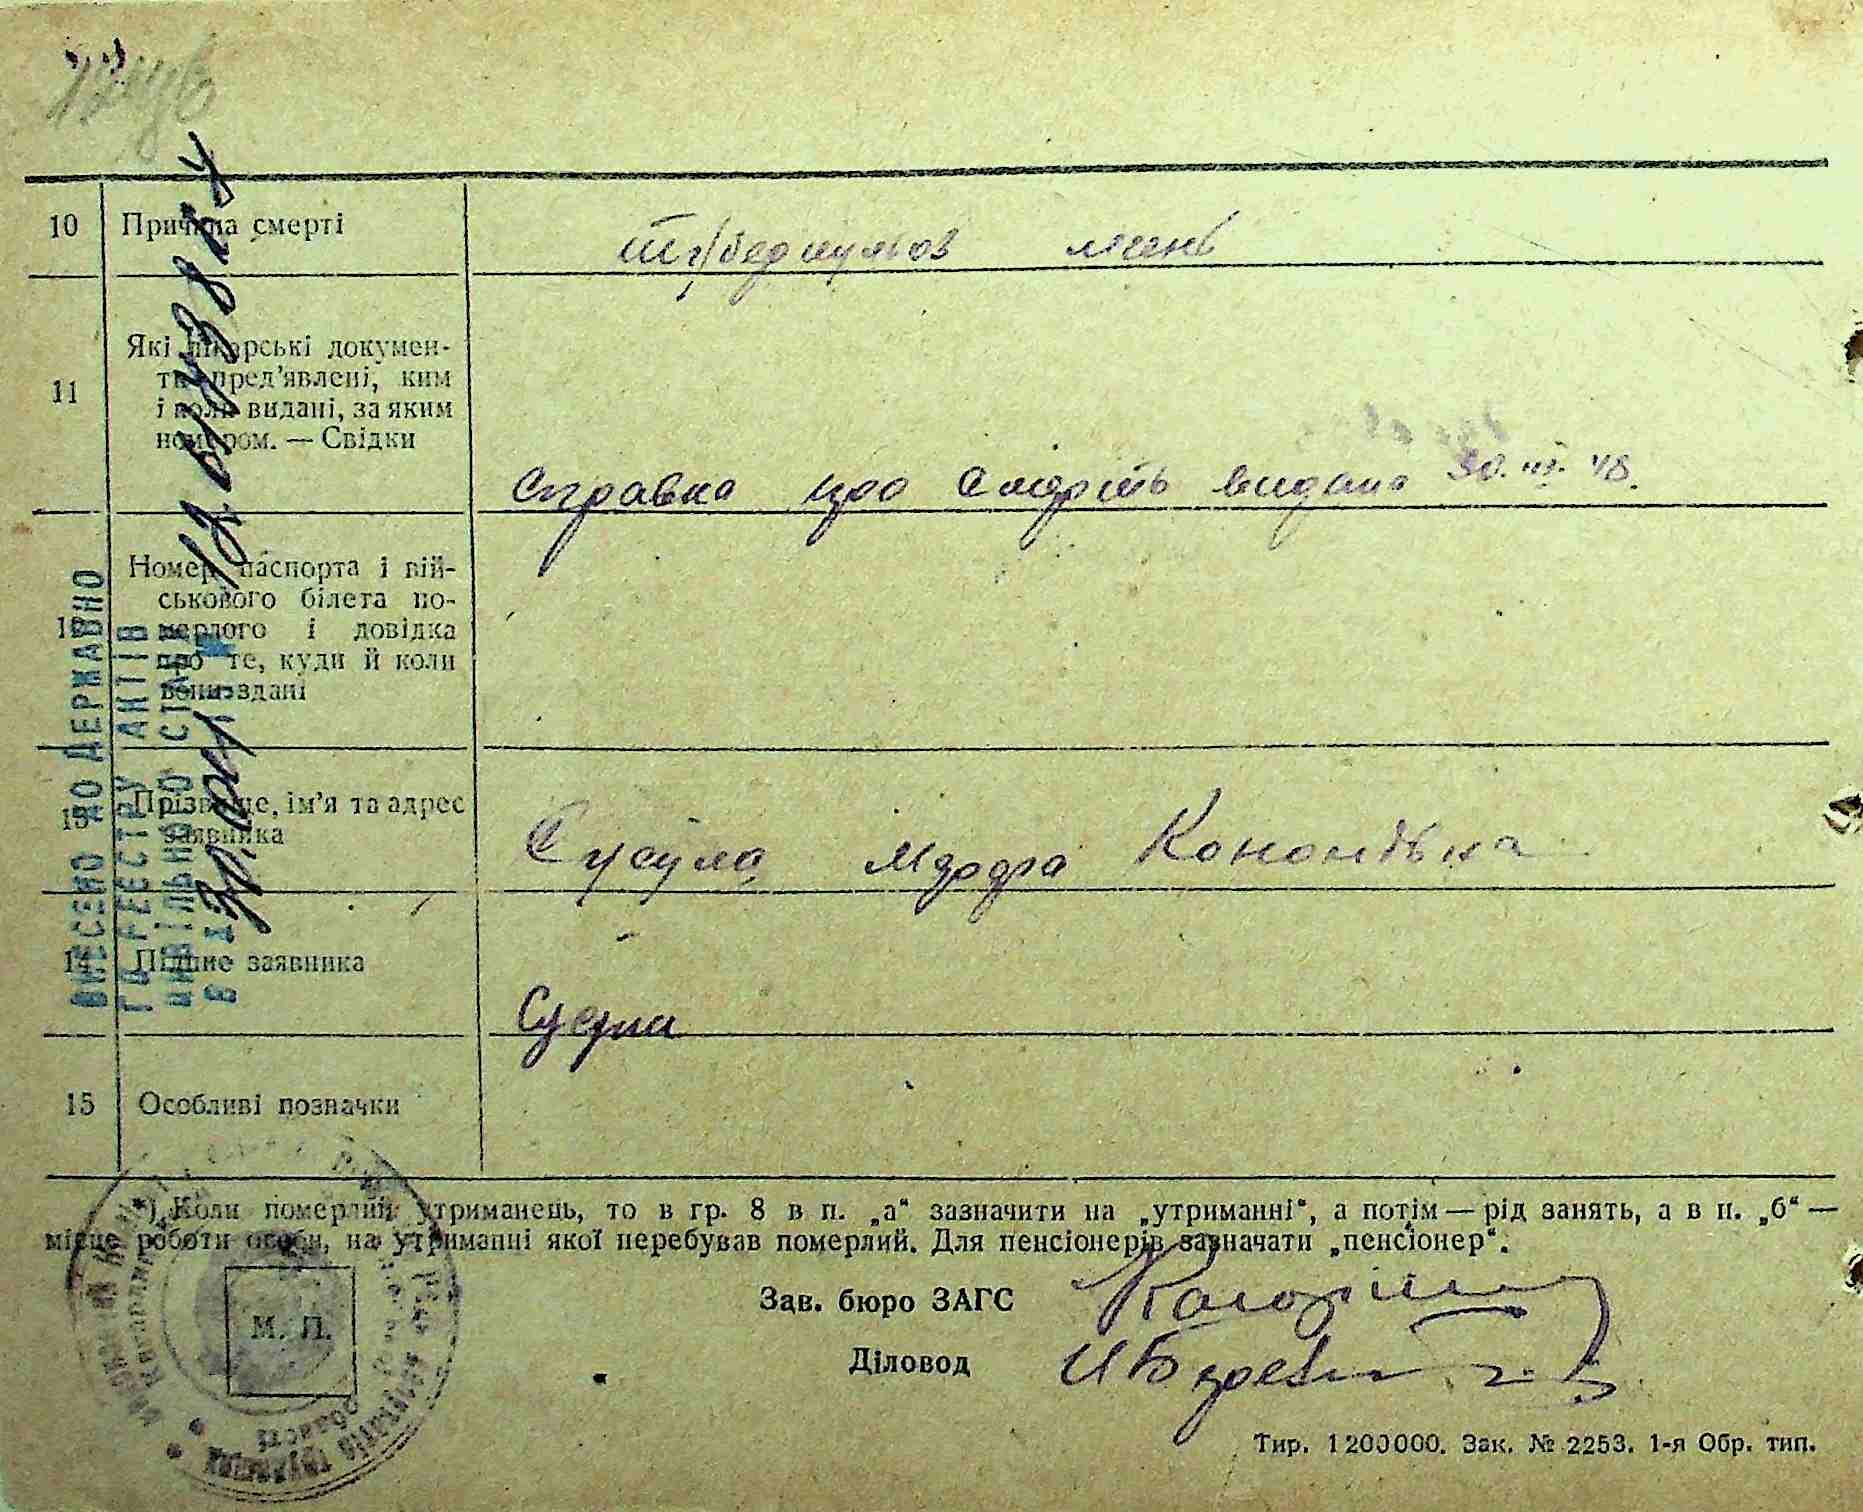 10 Причина смерті
туберкульоз легень
11 Які лікарські докумен-
ти пред'явлені, ким
і коли видані, за яким
номером. — Свідки
Справка про смерть видана 30.III.48.
12 Номер паспорта і вій-
ськового білета по-
мерлого і довідка
про те, куди й коли
вони здані
13 Прізвище, ім'я та адрес
заявника
Сусула Мотря Кононівка
14 Підпис заявника
Сусула
15 Особливі позначки
*) Коли померлий утриманець, то в гр. 8 в п. „а“ зазначити на „утриманні“, а потім — рід занять, а в п. „б“ —
місце роботи особи, на утриманні якої перебував померлий. Для пенсіонерів зазначати „пенсіонер“.
Зав. бюро ЗАГС
Діловод
М. П.
Тир. 1200000. Зак. № 2253. 1-я Обр. тип.
ВНЕСЕНО ДО ДЕРЖАВНО
ГО РЕЄСТРУ АКТІВ
ЦИВІЛЬНОГО СТАНУ
ВІД